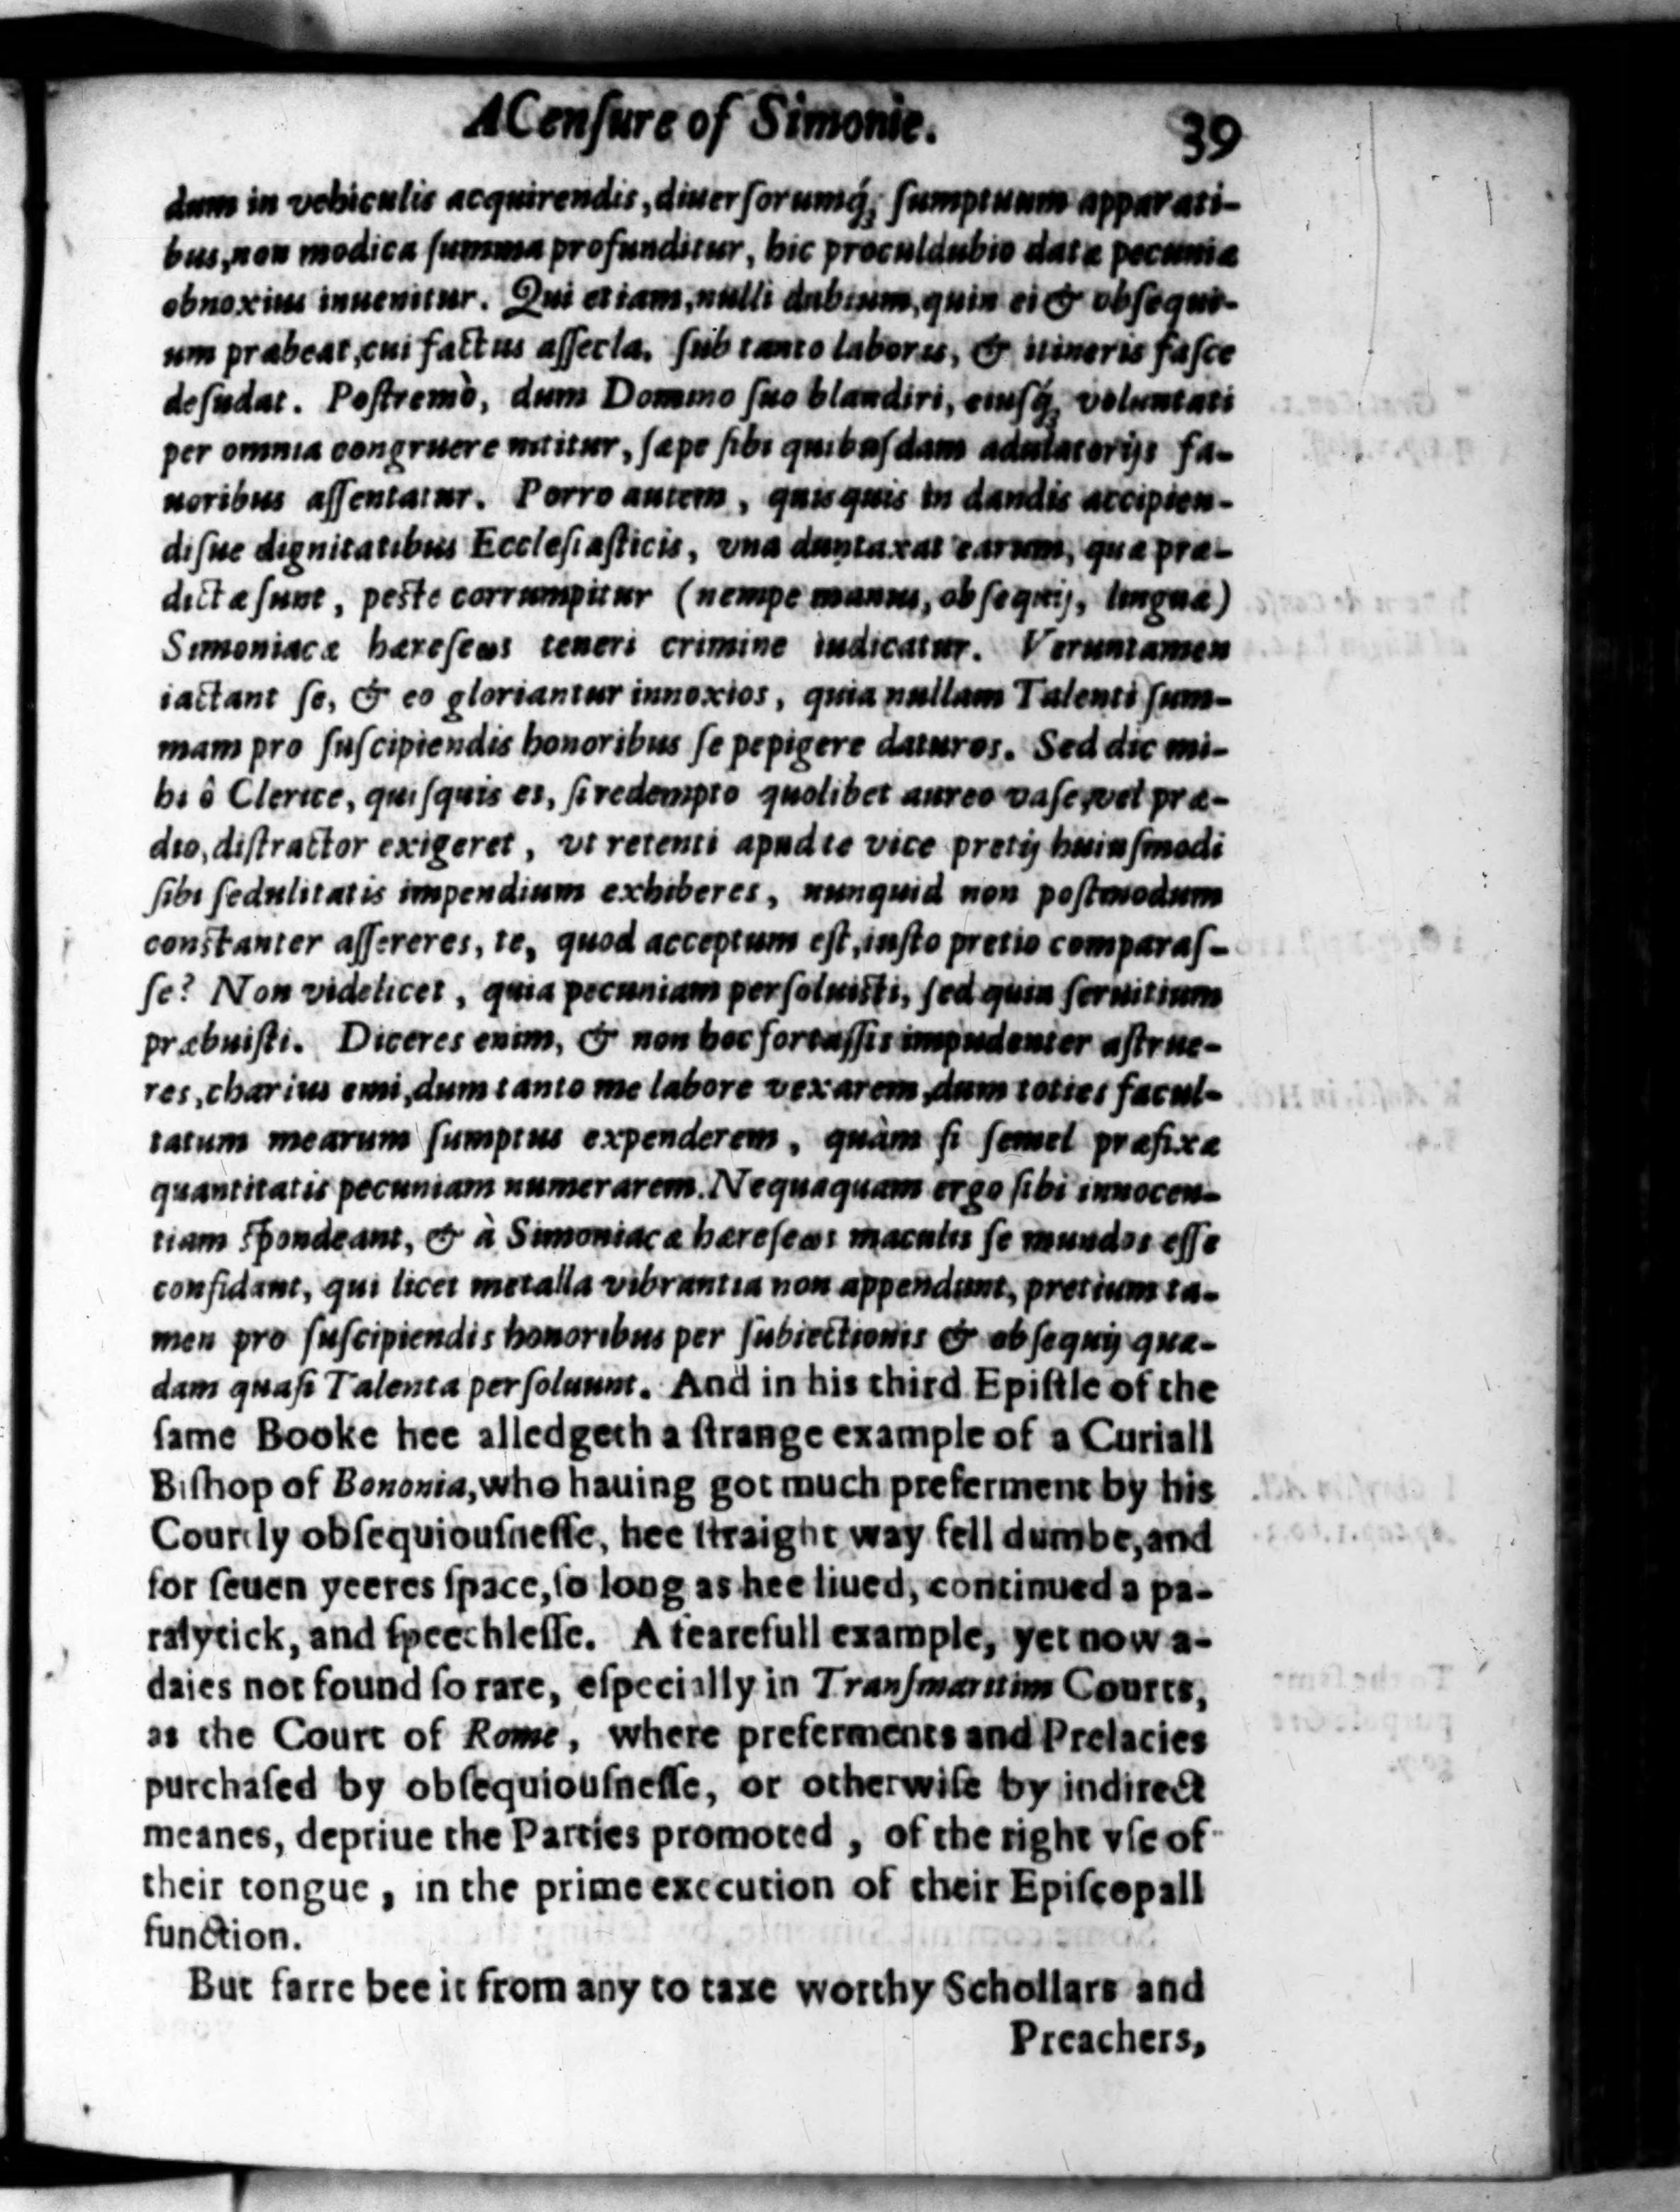 A Cenſure of Simonie. 39
dum in vehiculis acquirendis, diuerſorumq́; ſumptuum apparati-
bus, non modica ſumma profunditur, hic proculdubio datæ pecuniæ
obnoxius inuenitur. Qui etiam, nulli dubium, quin ei & obſequi-
um præbeat, cui factus aſſecla, ſub tanto laboris, & itineris faſce
deſudat. Poſtremò, dum Domino ſuo blandiri, eiuſq́; voluntati
per omnia congruere nititur, ſæpe ſibi quibuſdam adulatorijs fa-
uoribus aſſentatur. Porro autem, quisquis in dandis accipien-
diſue dignitatibus Eccleſiaſticis, vna duntaxat earum, quæ præ-
dictæ ſunt, peſte corrumpitur (nempe manus, obſequij, linguæ)
Simoniacæ hæreſeωs teneri crimine iudicatur. Veruntamen
iactant ſe, & eo gloriantur innoxios, quia nullam Talenti ſum-
mam pro ſuſcipiendis honoribus ſe pepigere daturos. Sed dic mi-
hi ô Clerice, quiſquis es, ſi redempto quolibet aureo vaſe, vel præ-
dio, diſtractor exigeret, vt retenti apud te vice pretij huiuſmodi
ſibi ſedulitatis impendium exhiberes, nunquid non poſtmodum
conſtanter aſſereres, te, quod acceptum eſt, iuſto pretio comparaſ-
ſe? Non videlicet, quia pecuniam perſoluiſti, ſed quia ſeruitium
præbuiſti. Diceres enim, & non hoc fortaſſis impudenter aſtrue-
res, charius emi, dum tanto me labore vexarem, dum toties facul-
tatum mearum ſumptus expenderem, quàm ſi ſemel præfixæ
quantitatis pecuniam numerarem. Nequaquam ergo ſibi innocen-
tiam ſpondeant, & à Simoniacæ hæreſeωs maculis ſe mundos eſſe
confidant, qui licet metalla vibrantia non appendunt, pretium ta-
men pro ſuſcipiendis honoribus per ſubiectionis & obſequij quæ-
dam quaſi Talenta perſoluunt. And in his third Epiſtle of the
ſame Booke hee alledgeth a ſtrange example of a Curiall
Biſhop of Bononia, who hauing got much preferment by his
Courtly obſequiouſneſſe, hee ſtraight way fell dumbe, and
for ſeuen yeeres ſpace, ſo long as hee liued, continued a pa-
ralytick, and ſpeechleſſe. A fearefull example, yet now a-
daies not found ſo rare, eſpecially in Tranſmaritim Courts,
as the Court of Rome, where preferments and Prelacies
purchaſed by obſequiouſneſſe, or otherwiſe by indirect
meanes, depriue the Parties promoted, of the right vſe of
their tongue, in the prime execution of their Epiſcopall
function.
But farre bee it from any to taxe worthy Schollars and
Preachers,